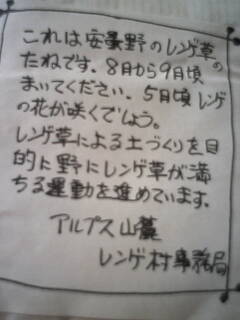 これは安曇野のレンゲ草の
たねです。8月から9月頃
まいてください。5月頃レンゲ
の花が咲くでしょう。
レンゲ草による土づくりを目
的に野にレンゲ草が満
ちる運動を進めています。
アルプス山麓
レンゲ村事務局